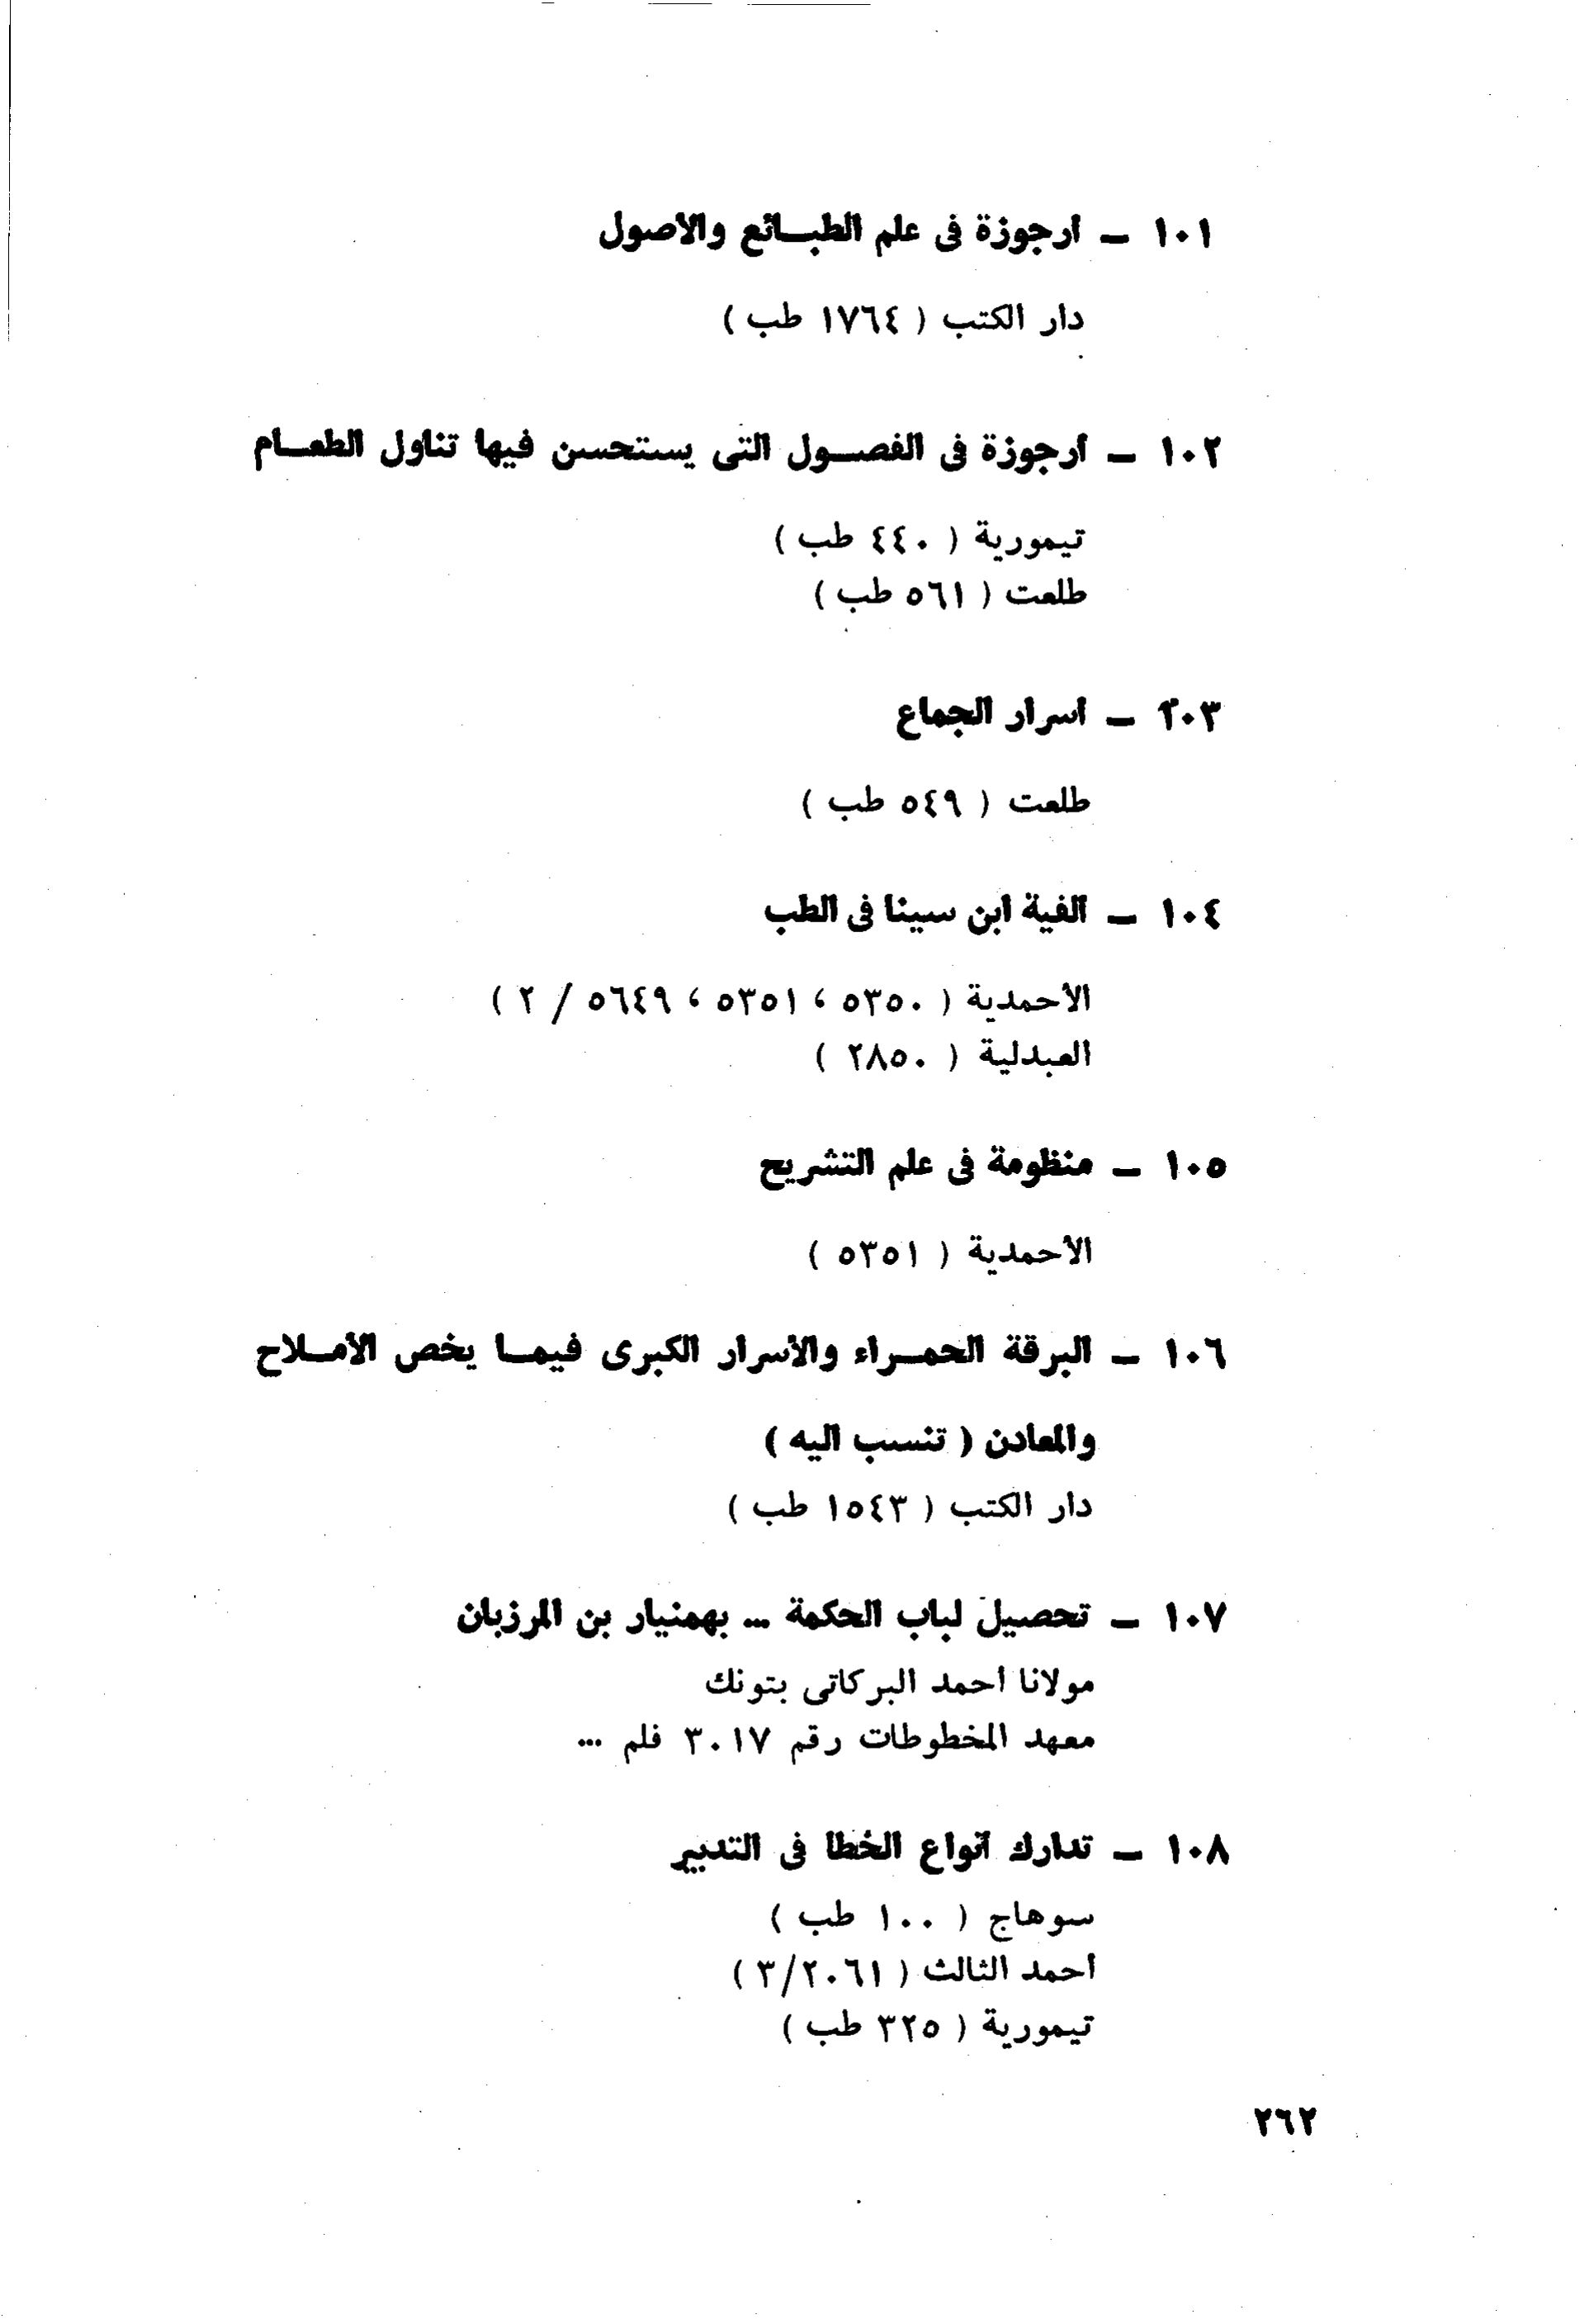 ١٠١ ــ ارجوزة فى علم الطبـائع والاصول
دار الكتب ( ١٧٦٤ طب )
١٠٢ ــ ارجوزة فى الفصـول التى يستحسن فيها تناول الطعـام
تيمورية ( ٤٤٠ طب )
طلعت ( ٥٦١ طب )
١٠٣ ــ اسرار الجماع
طلعت ( ٥٤٩ طب )
١٠٤ ــ الفية ابن سينا فى الطب
الاحمدية ( ٥٣٥٠ ، ٥٣٥١ ، ٥٦٤٩ / ٢ )
العبدلية ( ٢٨٥٠ )
١٠٥ ــ منظومة فى علم التشريح
الاحمدية ( ٥٣٥١ )
١٠٦ ــ البرقة الحمـراء والأسرار الكبرى فيمـا يخص الأمـلاح
والمعادن ( تنسب اليه )
دار الكتب ( ١٥٤٣ طب )
١٠٧ ــ تحصيل لباب الحكمة ... بهمنيار بن المرزبان
مولانا احمد البركاتى بتونك
معهد المخطوطات رقم ٣٠١٧ فلم ...
١٠٨ ــ تدارك أنواع الخطا فى التدبير
سوهاج ( ١٠٠ طب )
احمد الثالث ( ٣/٢٠٦١ )
تيمورية ( ٣٢٥ طب )
٢٦٢